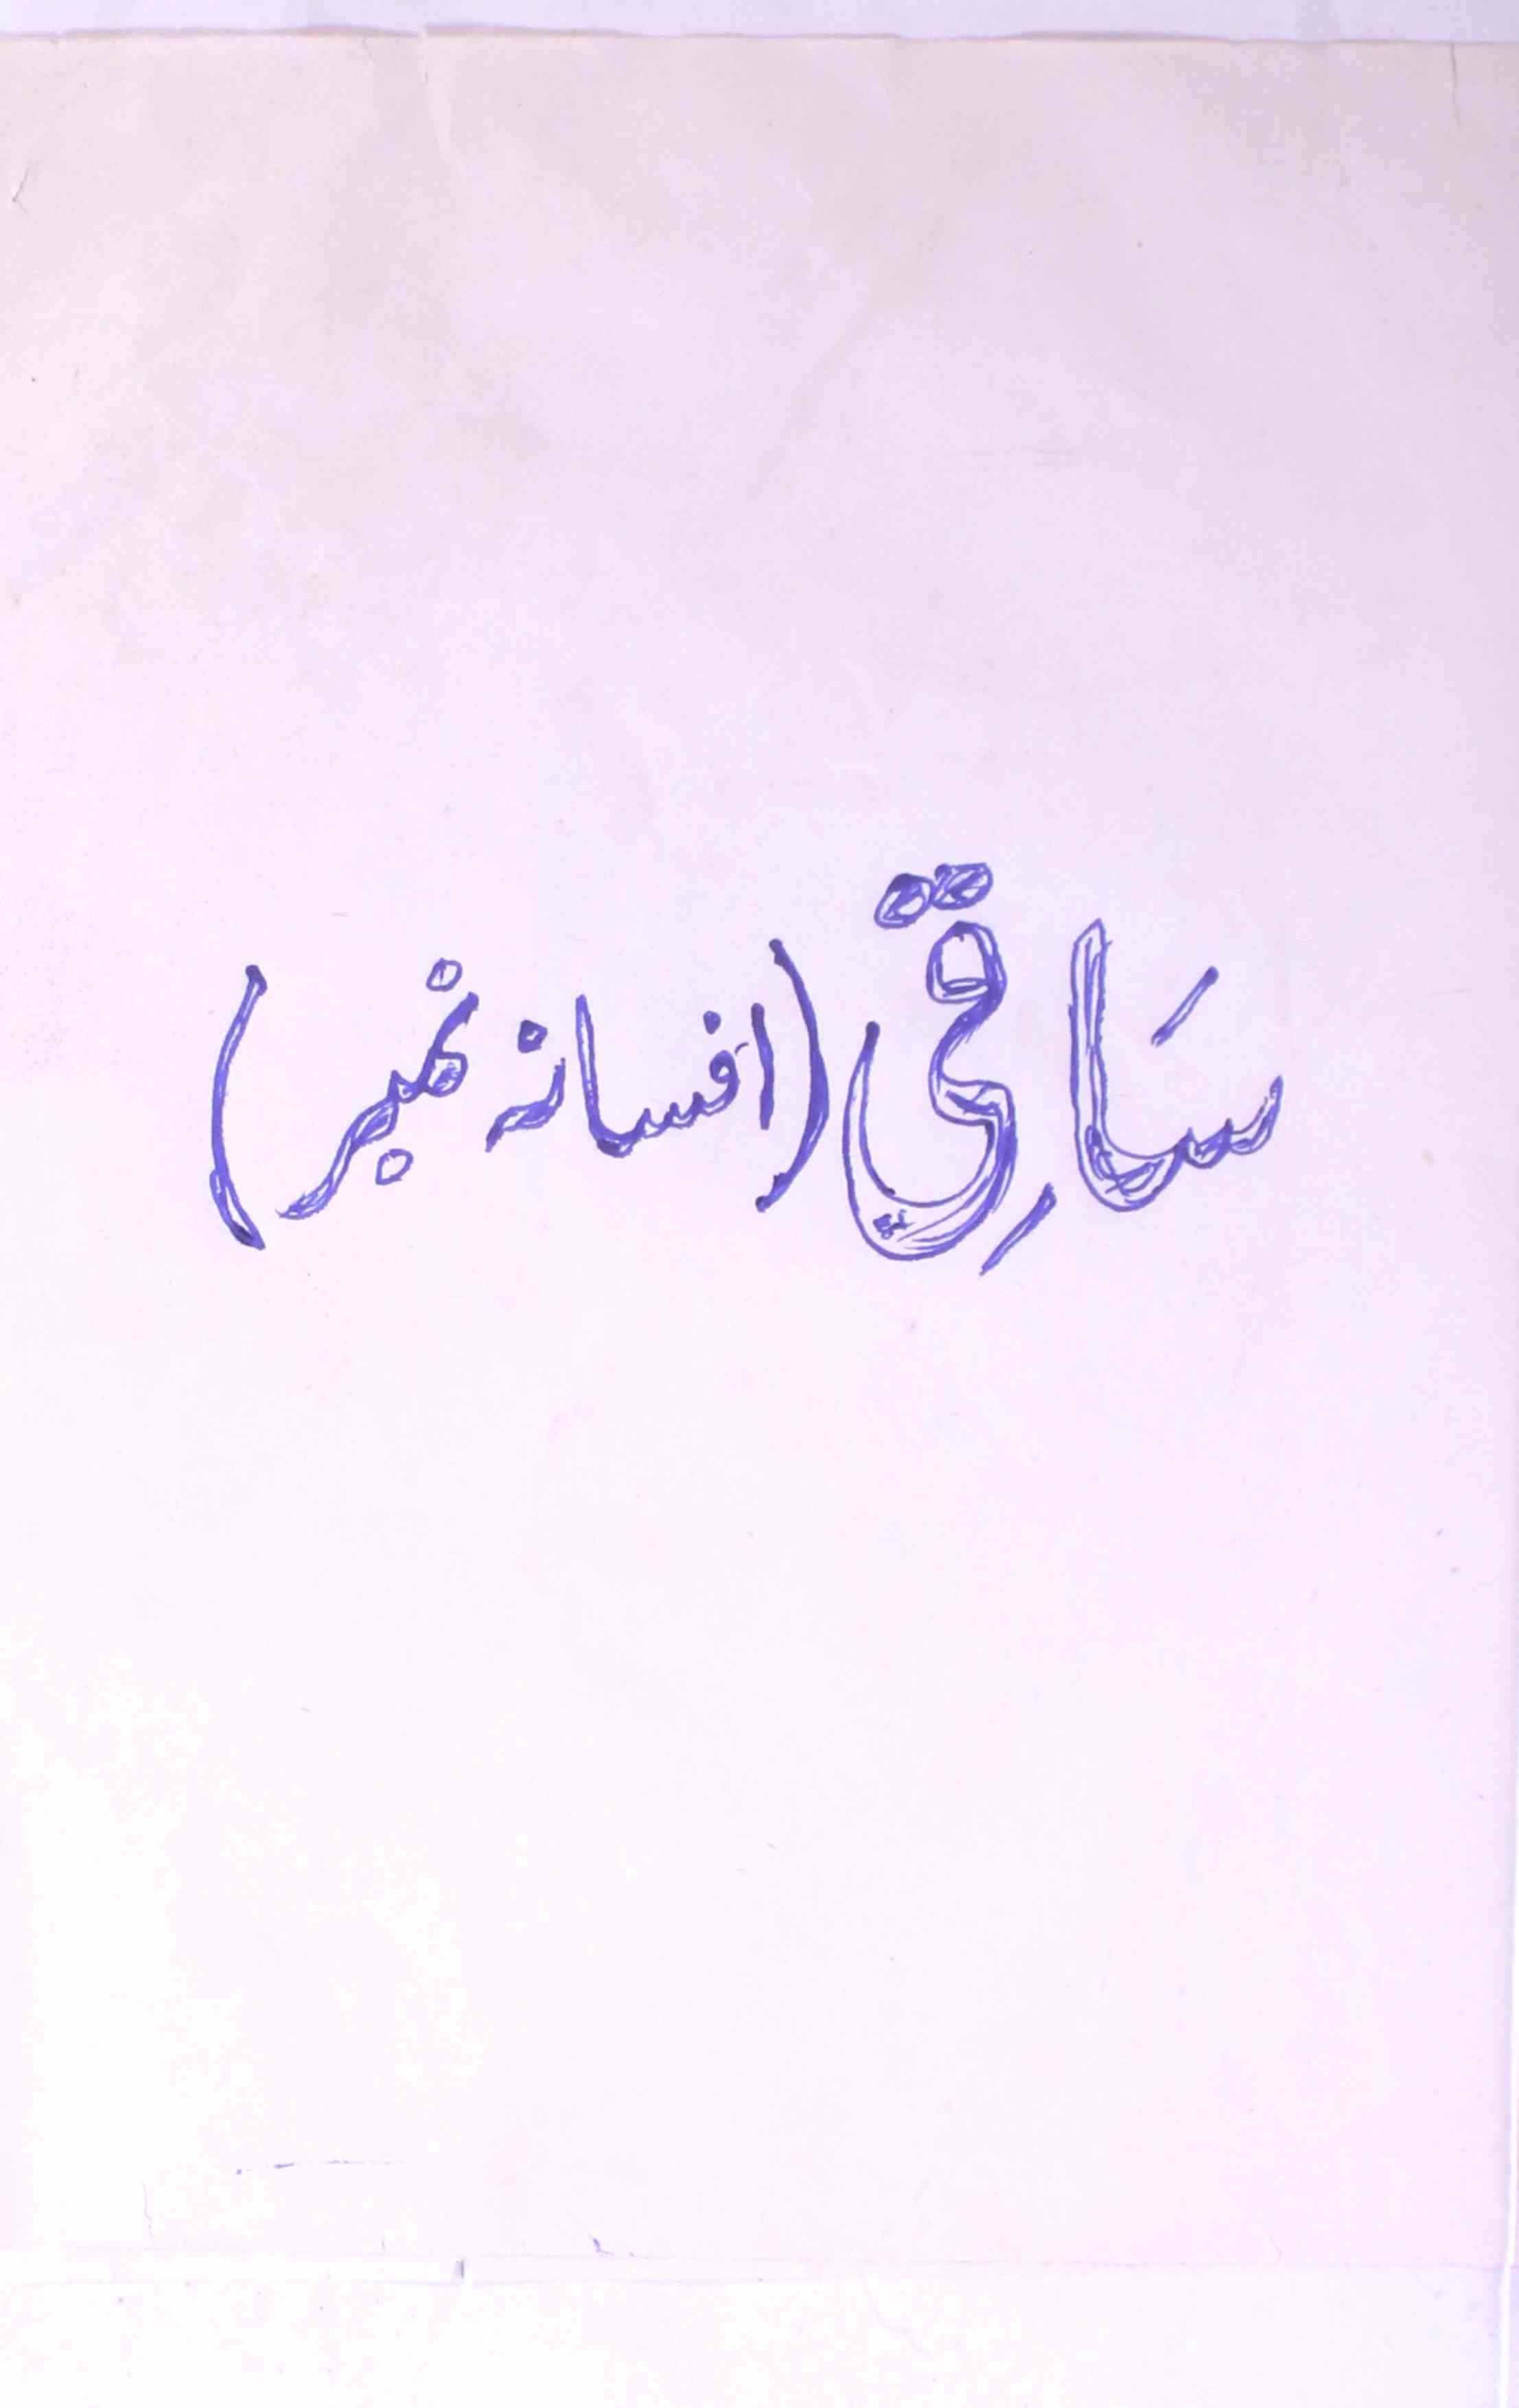 سَاقِی (افسانہ نمبر)